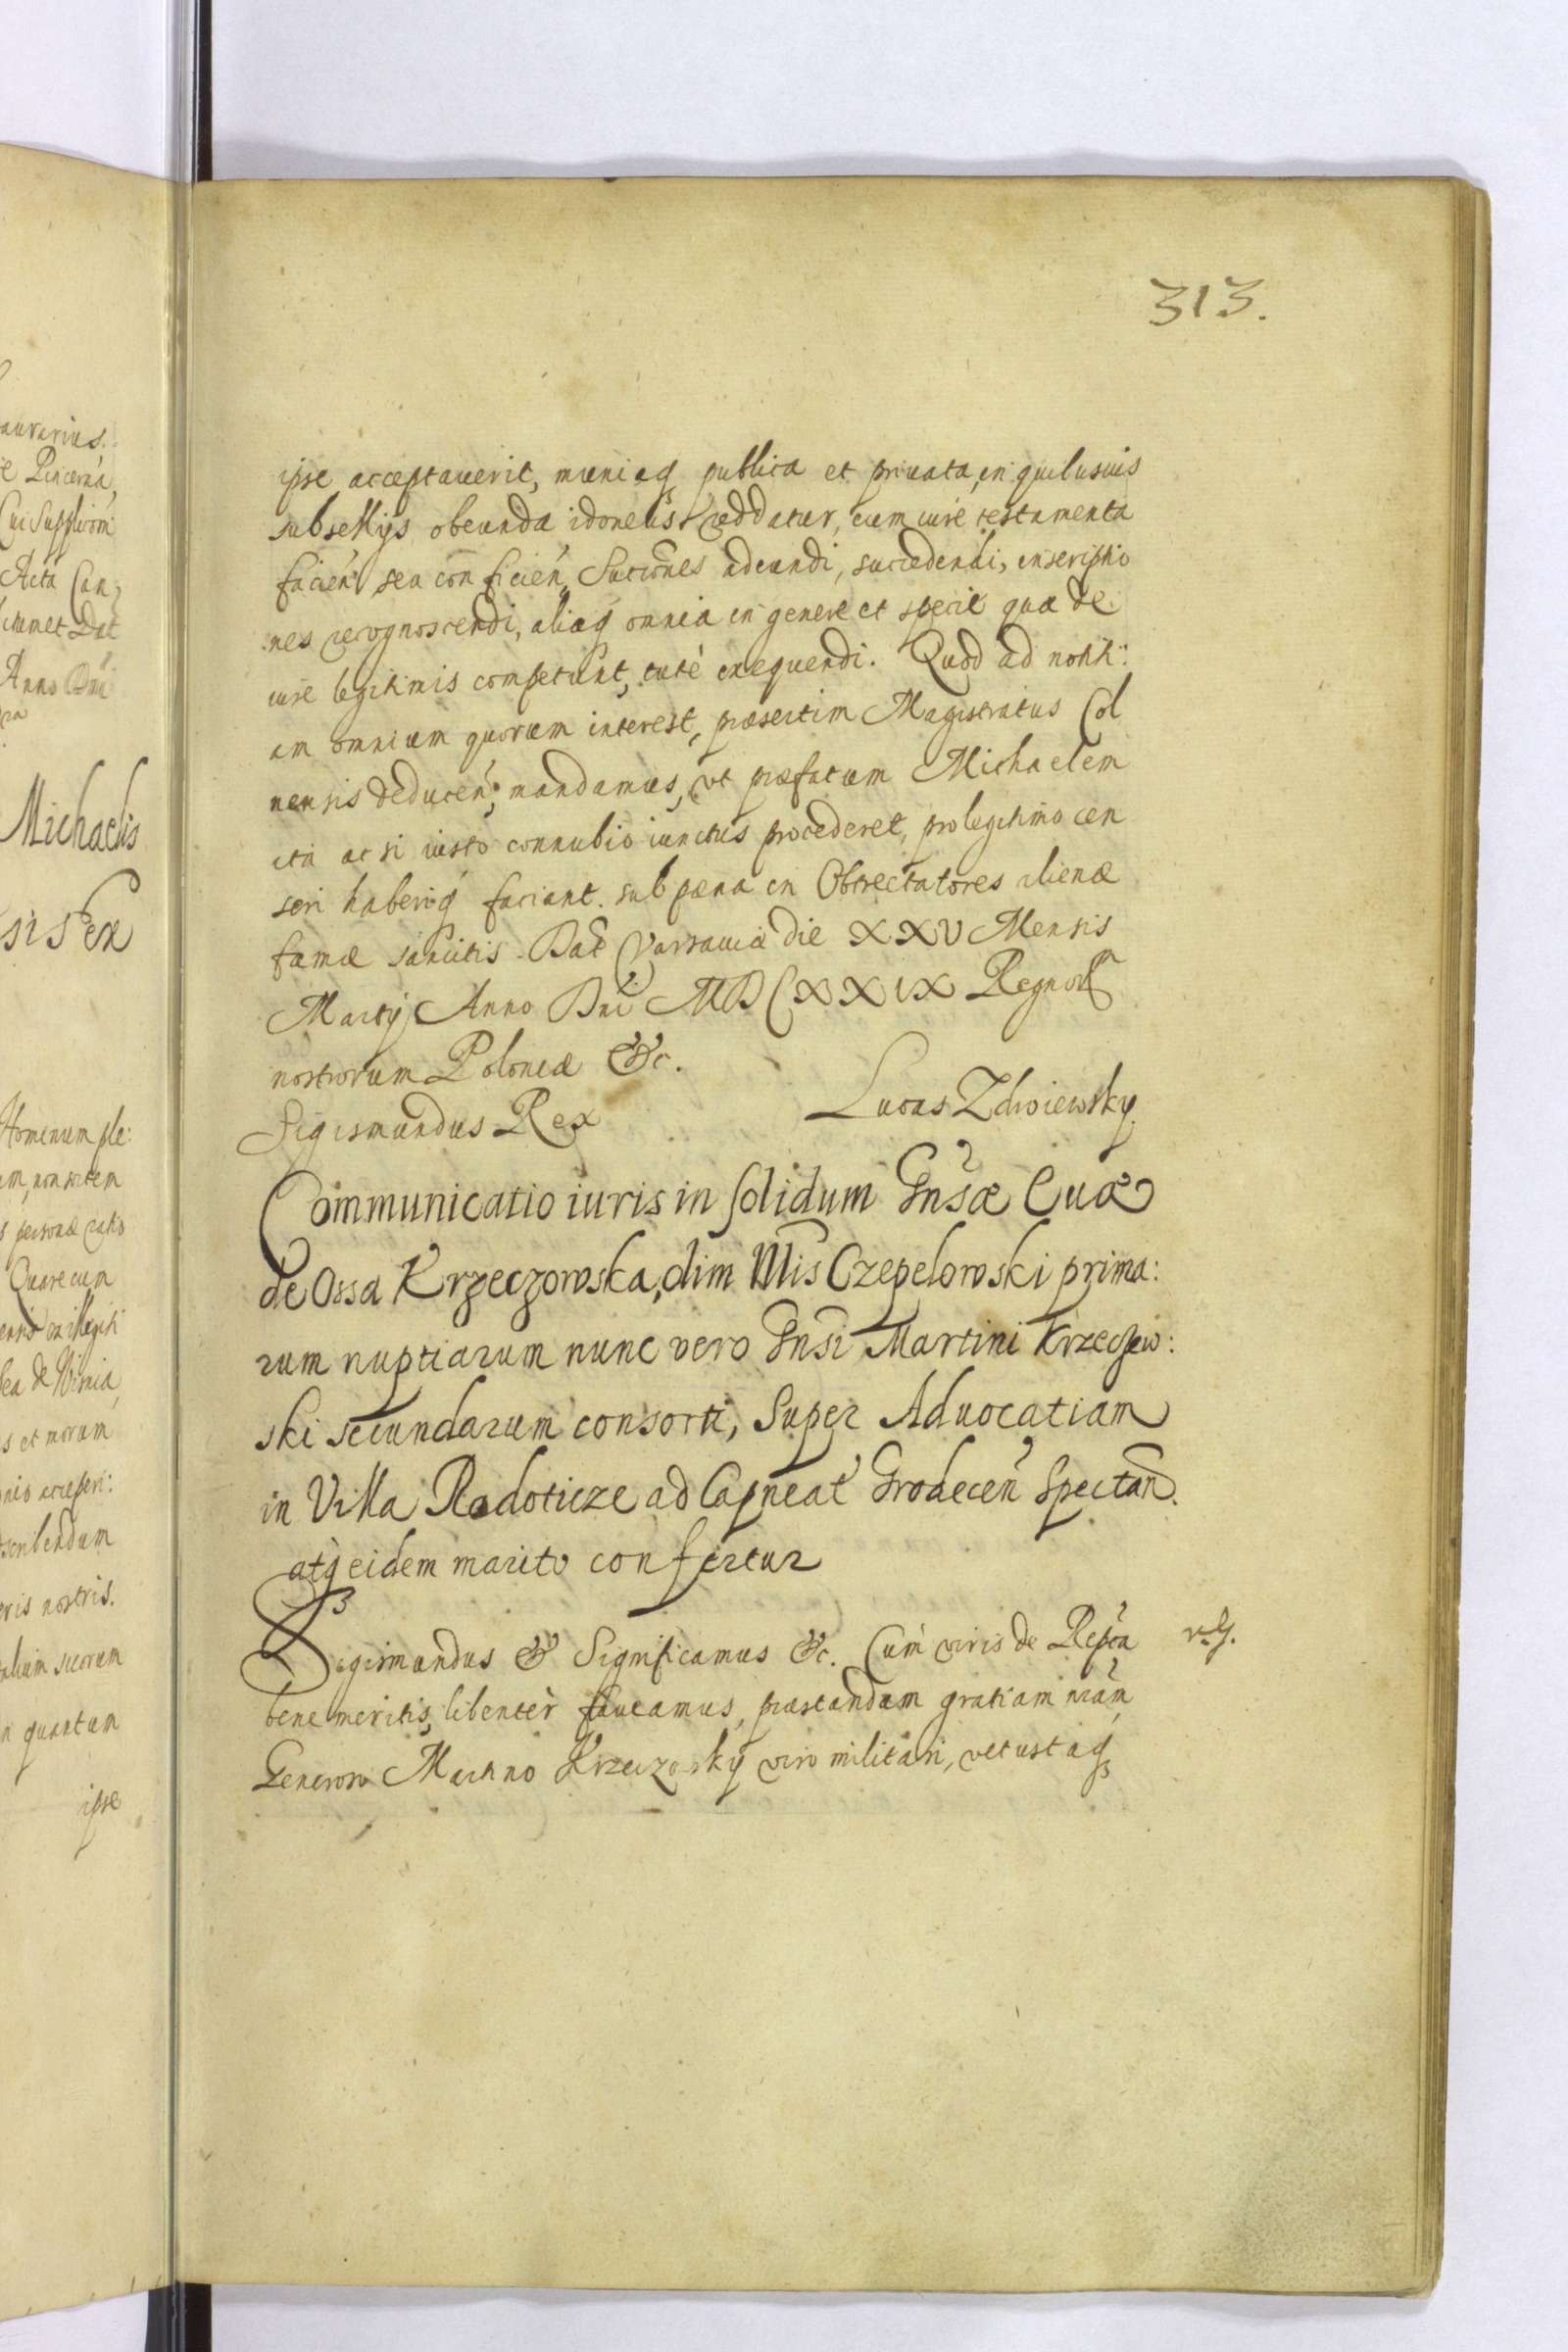 313.
ipse acceptauerit, muniaq publica et priuata, in quibusuis
subsellijs obeunda idoneus reddatur, cum iure testamenta
facien sea conficien, Successiones adeundi, succedendi, inscriptio
nes recognoscendi, aliaq omnia in genere et specie quæ de
iure legitimis competunt, tutè exequendi. Quod ad notiti:
am omnium quorum interest, præsertim Magistratus Col
nensis deducen; mandamus, vt præfatum Michaelem
ita ac si iusto connubio iunctus procederet, pro legitimo cen
seri haberiq faciant. sub pæna in Obtrectatores alienæ
famæ sancitis. Dat Varsauiæ die XXV Mensis
Martij Anno Dni MDCXXIX Regnor
nostrorum Poloniæ &c.
Sigismundus Rex Lucas Zdwiewsky.
Communicatio iuris in solidum Gnsæ Euæ
de Ossa Krzeczowska, olim Mis Czepelowski prima:
rum nuptiarum nunc vero Gnsi Martini Krzeczew:
ski secundarum consorti, Super Aduocatiam
in Villa Radoticze ad Capneat Grodecen Spectan.
atq eidem marito confertur
Sigismundus & Significamus &c. Cum viris de Repca r. G.
bene meritis, libenter faueamus, præstandam gratiam nram,
Generoso Martino Krzeczosky viro militari, vetustaq
aurarius.
e Pincerna,
Cui Supplicom
Acta Can,
Anno Dni
Michaelis
sis ex
Hominum ple:
s personæ ratio
Quare cum
s et morum
scribendum
ris nostris.
alium suorum
n quantum
ipse